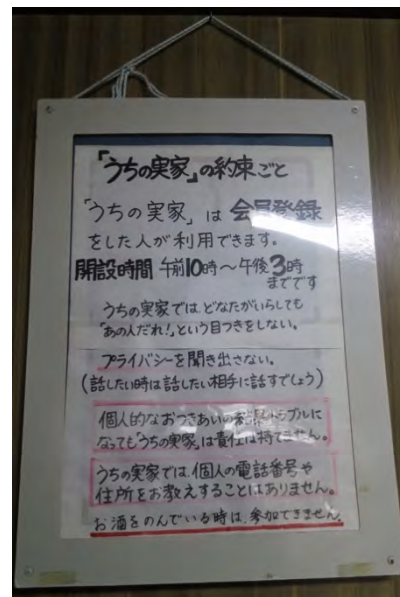 「うちの実家」の約束ごと
「うちの実家」は 会員登録
をした人が利用できます。
開設時間 午前10時〜午後3時
までです
うちの実家では、どなたがいらしても
「あの人だれ!」という目つきをしない。
プライバシーを聞き出さない。
(話したい時は話したい相手に話すでしょう)
個人的なおつきあいの結果トラブルに
なっても「うちの実家」は責任は持てません。
うちの実家では、個人の電話番号や
住所をお教えすることはありません。
お酒をのんでいる時は、参加できません。